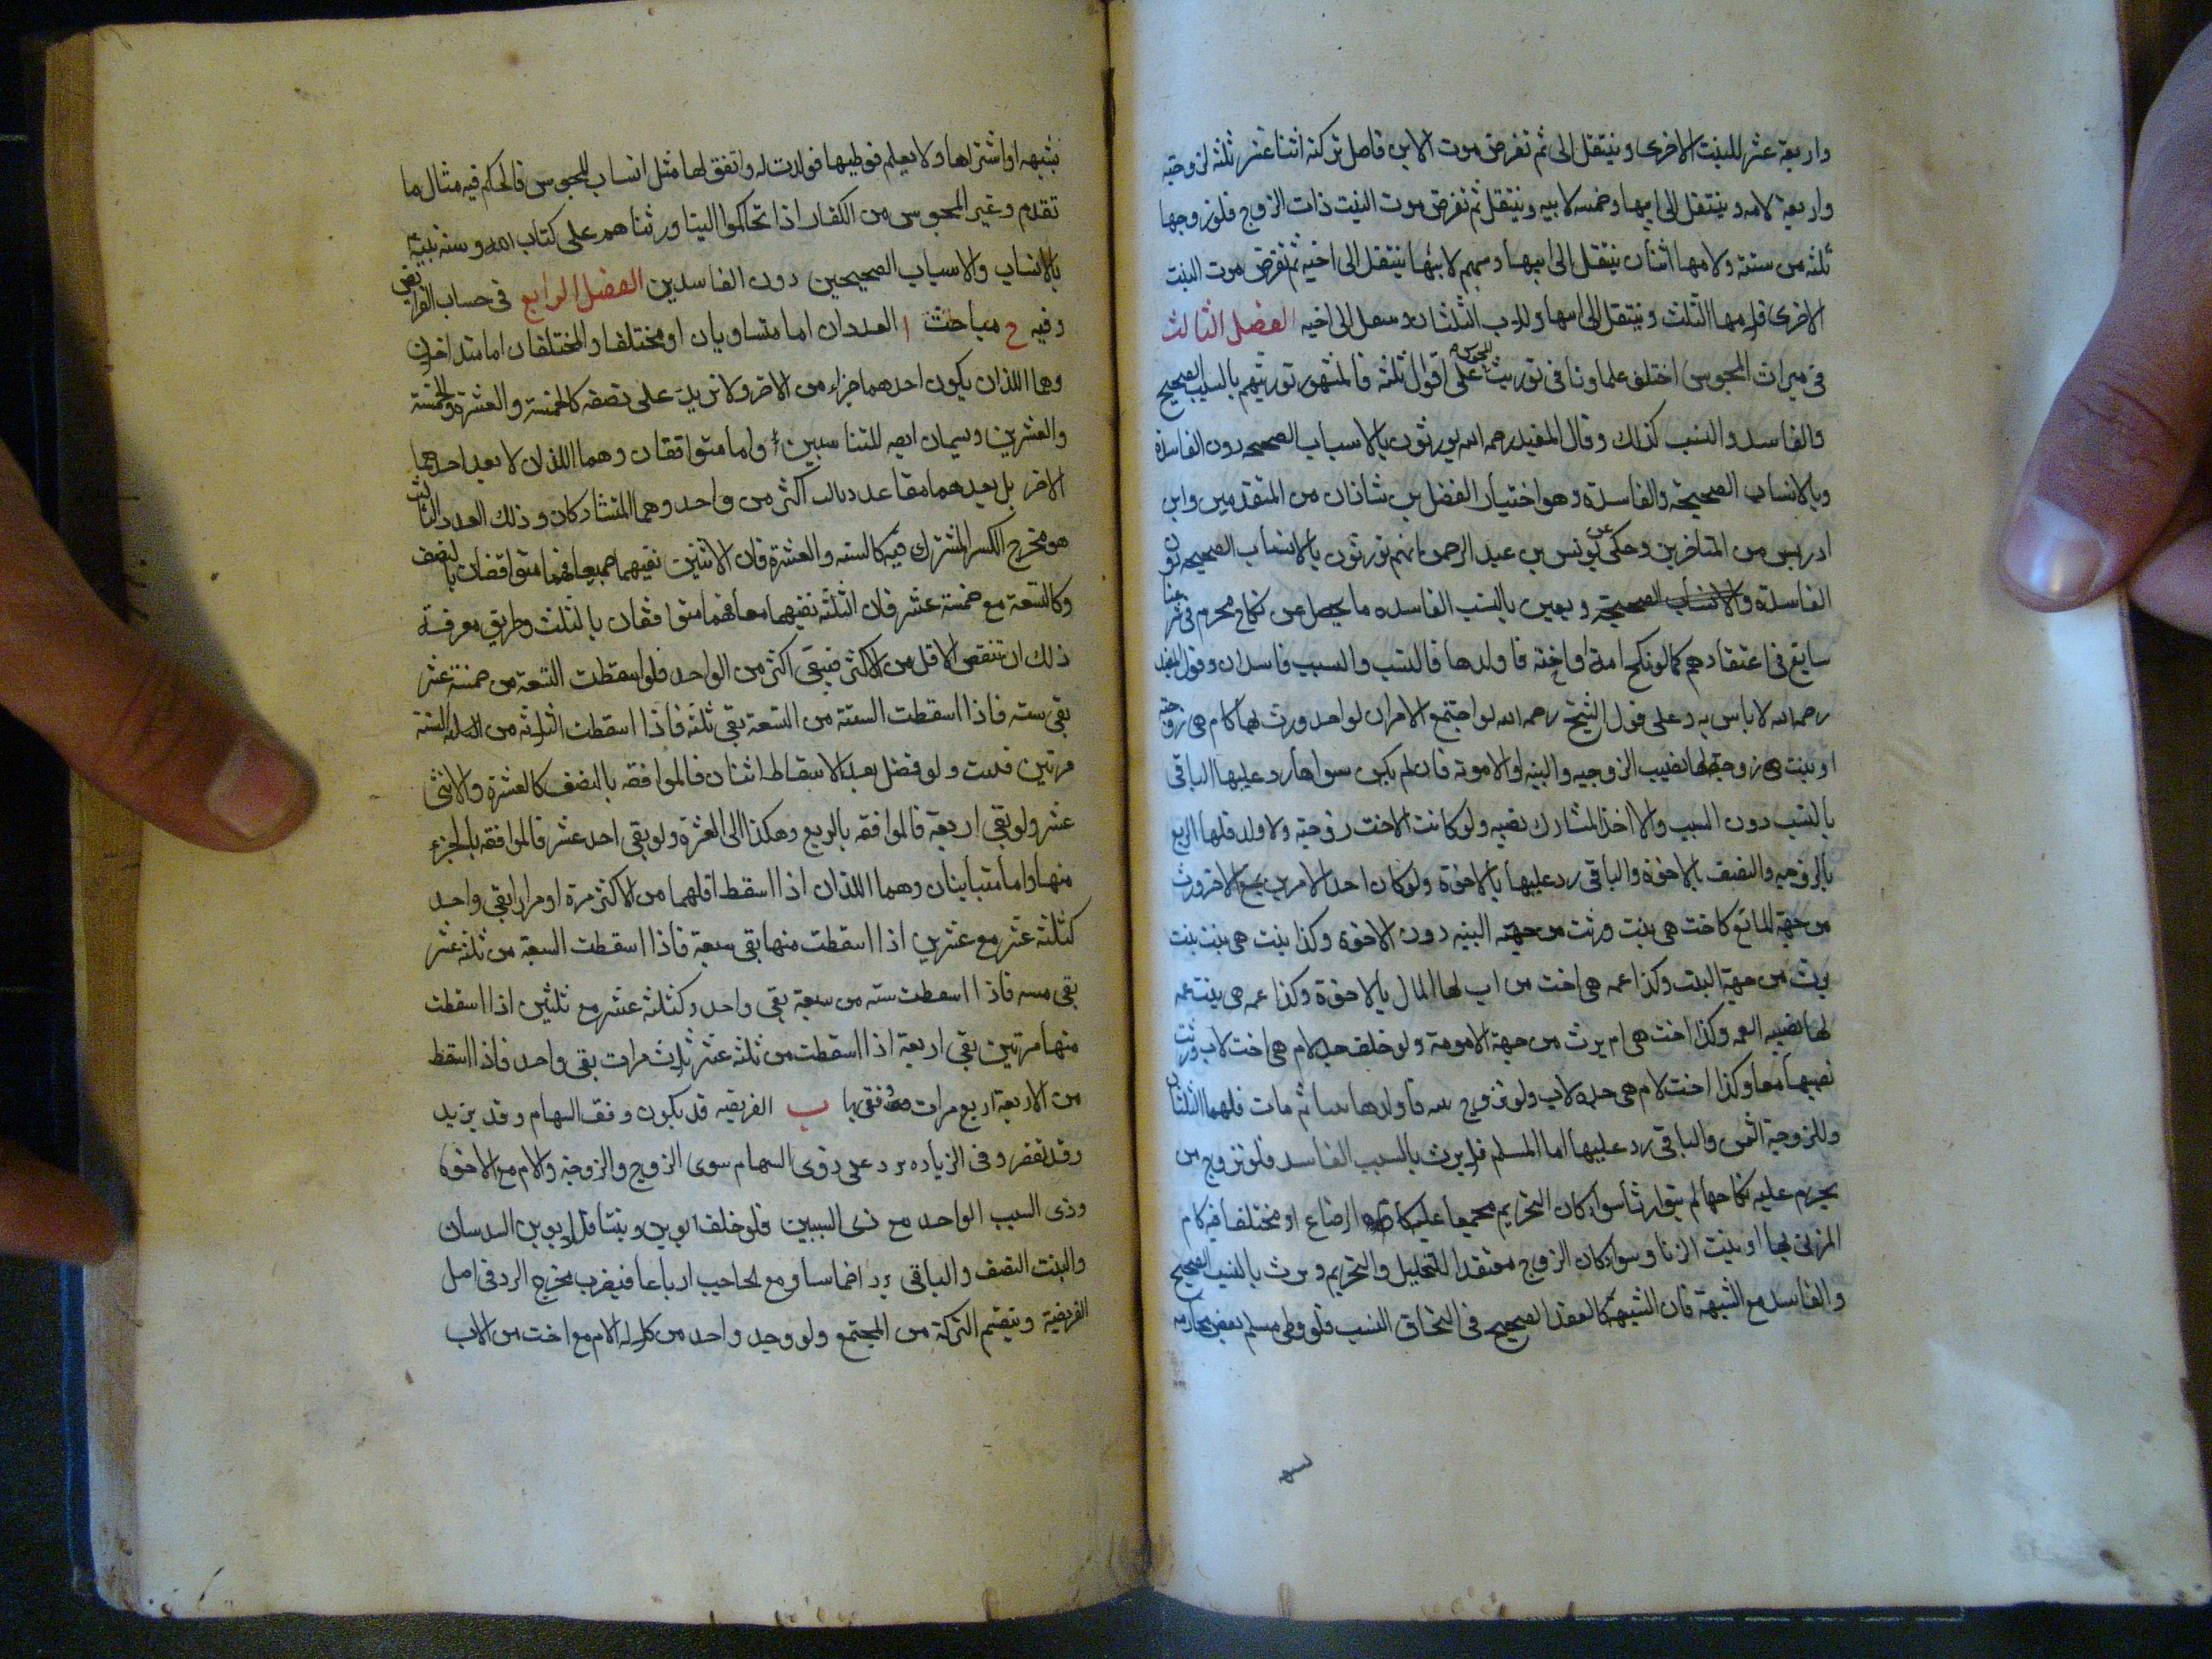 واربعة عشر للبنت الاخرى وينتقل الى ثم تفرض موت الابن فاصل تركته اثنا عشر ثلثه لزوجته
واربعة لامه وينتقل الى ابيها وخمسه لابيه وينتقل ثم تفرض موت البنت ذات الزوج فلزوجها
ثلثه من ستة ولامها اثنان ينتقل الى ابيها وسهم لابيها ينتقل الى اخيه ثم تفرض موت البنت
الاخرى فلامها الثلث وينتقل الى ابيها وللاب الثلثان وينتقل الى اخيه الفصل الثالث
فى ميراث المجوس اختلف علماونا فى توريث المجوس على اقوال ثلثه فالمشهور توريثهم بالسبب الصحيح
والفاسد والنسب كذلك وقال المفيد رحمه الله يورثون بالاسباب الصحيحه دون الفاسدة
وبالانساب الصحيحة والفاسدة وهو اختيار الفضل بن شاذان من المتقدمين وابن
ادريس من المتاخرين وحكى عن يونس بن عبد الرحمن انهم يورثون بالانساب الصحيحه دون
الفاسدة والانساب الصحيحة ويعين بالنسب الفاسده ما يحصل عن نكاح محرم فى شرعنا
سايغ فى اعتقادهم كما لو نكح امه او اخته فاولدها فالنسب والسبب فاسدان وقول المفيد
رحمه الله لا باس به وعلى قول الشيخ رحمه الله لو اجتمع الامران لواحد ورث بهما كام هى زوجة
او بنت هى زوجة لها نصيب الزوجيه والبنيه او الامومة فان لم يكن سواها رد عليها الباقى
بالنسب دون السبب والا اخذ المشارك نصيبه ولو كانت الاخت زوجته ولا ولد فلها الربع
بالزوجيه والنصف بالاخوة والباقى رد عليها بالاخوة ولو كان احد الامرين يمنع الاخر ورث
من جهة المانع كاخت هى بنت ورثت من جهة البنيه دون الاخوة وكذا بنت هى بنت بنت
يرث من جهة البنت وكذا عمه هى اخت من اب لها المال بالاخوة وكذا عمه هى بنت عمه
لها نصيب العمه وكذا اخت هى ام يرث من جهة الامومة ولو خلف جده لام هى اخت لاب ورثت
نصيبهما معا وكذا اخت لام هى جده لاب ولو تزوج بنته فاولدها بنتا ثم مات فلهما الثلثان
وللزوجة الثمن والباقى رد عليها اما المسلم فلا يرث بالسبب الفاسد فلو تزوج من
يحرم عليه نكاحها لم يتوارثا سواء كان التحريم مجمعا عليه كام الرضاع او مختلفا فيه كام
المزنى بها او بنت الزنا وسواء كان الزوج معتقدا للتحليل والتحريم ويرث بالنسب الصحيح
والفاسد مع الشبهة فان الشبهة كالعقد الصحيح فى التحاق النسب فلو وطى مسلم بعض محارمه
بشبهه او اشتراها ولا يعلم فوطيها فولدت له واتفق لها مثل انساب المجوس فالحكم فيه مثال ما
تقدم وغير المجوس من الكفار اذا تحاكموا الينا ورثناهم على كتاب الله وسنة نبيه
بالانساب والاسباب الصحيحين دون الفاسدين الفصل الرابع فى حساب الفرائض
وفيه ح مباحث ا العددان اما متساويان او مختلفا والمختلفان اما متداخلان
وهما اللذان يكون احدهما جزاء من الاخر ولا يزيد على نصفه كالخمسة والعشرة والخمسة
والعشرين ويسميان ايضه للمتناسبين واما متوافقان وهما اللذان لا يعد احدهما
الاخر بل يعدهما معا عدد ثالث اكثر من واحد وهما المتشاركان وذلك العدد الثالث
هو مخرج الكسر المشترك فيه كالسته والعشرة فان الاثنين تفنيهما جميعا فهما متوافقان بالنصف
وكالتسعة مع خمسة عشر فان الثلثه تفنيهما معا فهما متوافقان بالثلث وطريق معرفة
ذلك ان تنقص الاقل من الاكثر فيبقى اكثر من الواحد فلو اسقطت التسعة من خمسة عشر
بقى سته فاذا اسقطت الستة من التسعة بقى ثلثه فاذا اسقطت الثلثه من الستة
مرتين فنيت ولو فضل بعد الاسقاط اثنان فالموافقه بالنصف كالعشرة والاثنى
عشر ولو بقى اربعة فالموافقه بالربع وهكذا الى العشرة ولو بقى احد عشر فالموافقه بالجزء
منها واما متباينان وهما اللذان اذا اسقط اقلهما من الاكثر مرة او مرارا بقى واحد
كثلثه عشر مع عشرين اذا اسقطت منها بقى سبعة فاذا اسقطت السبعة من ثلثه عشر
بقى سته فاذا اسقطت سته من سبعة بقى واحد وكثلثه عشر مع ثلثين اذا اسقطت
منها مرتين بقى اربعة اذا اسقطت من ثلثه عشر ثلاث مرات بقى واحد فاذا اسقط
من الاربعة اربع مرات فنى بها ب الفريضه قد يكون وفق السهام وقد يزيد
وقد تقصر وفى الزياده يرد على ذوى السهام سوى الزوج والزوجة والام مع الاخوة
وذى السبب الواحد مع ذى السببين فلو خلف ابوين وبنتا فللابوين السدسان
والبنت النصف والباقى يرد اخماسا ومع الحاجب ارباعا فيضرب مخرج الرد فى اصل
الفريضة ويقسم التركة من المجتمع ولو وجد واحد من كلالة الام مع اخت من الاب